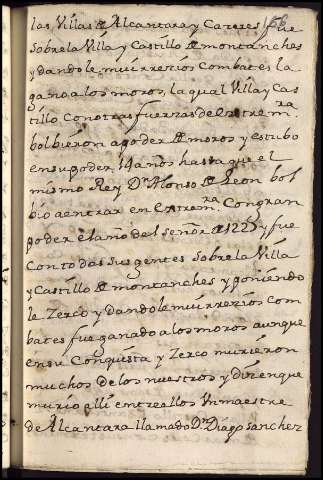 las Villas de Alcantara y Cazeres fue
sobre la Villa y Castillo de montanches
y dandole mui rrezios Combates la
gano a los moros, la qual Villa y Cas
tillo Con otras fuerzas de extrem.ra
bolbieron a poder de moros y estubo
en su poder 14 años hasta que el
mismo Rey Dn Alonso de Leon bol
bio a entrar en extrem.ra Con gran
poder el año del señor de 1225 y fue
Con todas sus gentes sobre la Villa
y Castillo de montanches y poniendo
le Zerco y dandole mui rrezios Com
bates fue ganado a los moros aunque
en su Conquista y Zerco murieron
muchos de los nuestros y dizen que
murio alli entre ellos Un maestre
de Alcantara llamado Dn Diago sanchez